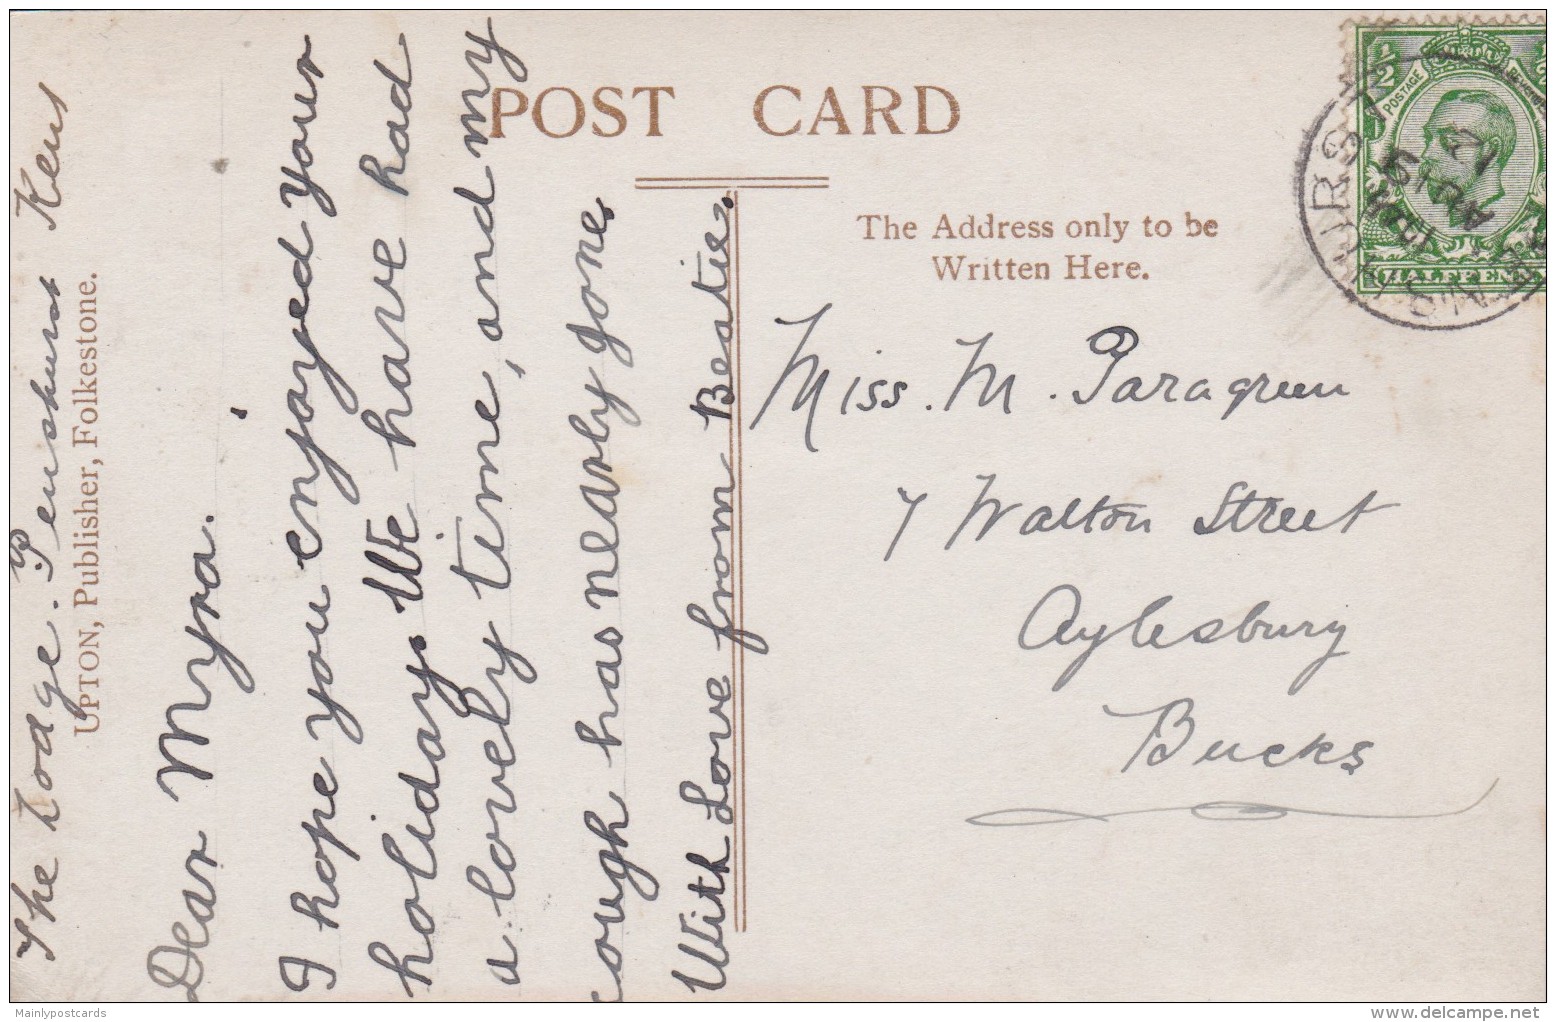 POST CARD
The Address only to be
Written Here.
Miss. M. Paragreen
7 Walton Street
Aylesbury
Bucks
The Lodge. Penshurst Kent
UPTON, Publisher, Folkestone.
Dear Myra.
I hope you enjoyed your
holiday. We have had
a lovely time, and my
cough has nearly gone.
With Love from Beatie.
½
POSTAGE
HALFPENNY
AU 19
12
Mainlypostcards
delcampe.net